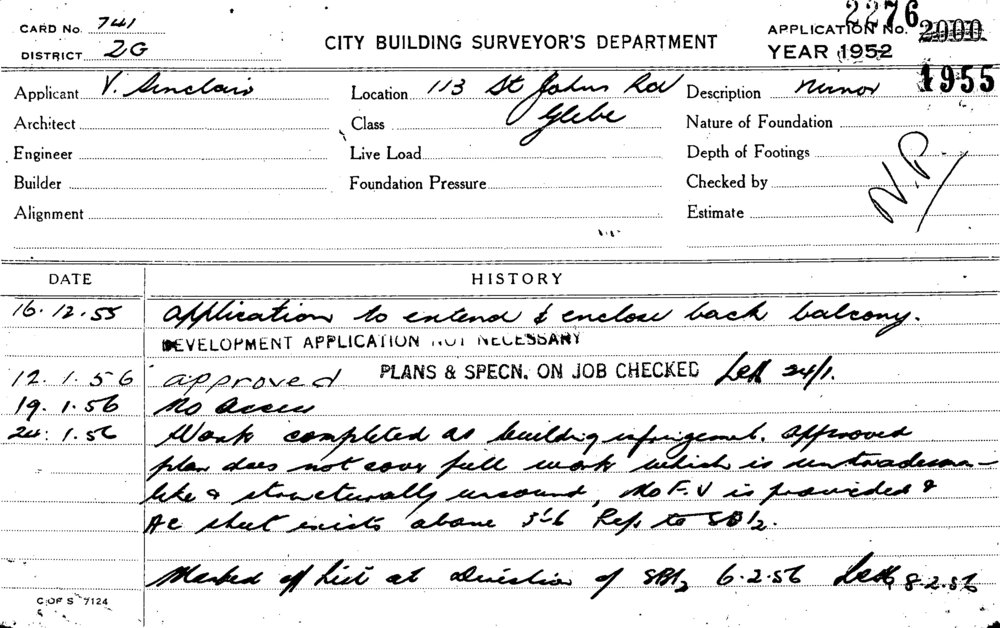 CARD No. 741
DISTRICT 2G
CITY BUILDING SURVEYOR'S DEPARTMENT
2276
APPLICATION No. 2000
YEAR 1952
1955
Applicant V. Sinclair
Location 113 St Johns Rd
Glebe
Description Minor
Architect
Class
Nature of Foundation
Engineer
Live Load
Depth of Footings
Builder
Foundation Pressure
Checked by
Alignment
Estimate
N.P.
DATE HISTORY
16.12.55 Application to extend & enclose back balcony.
DEVELOPMENT APPLICATION NOT NECESSARY
12.1.56 approved PLANS & SPECN. ON JOB CHECKED 24/1.
19.1.56 No Access
24.1.56 Work completed as building infringement. Approved
plan does not cover full work which is untradesman-
like & structurally unsound, No F.V is provided &
AC sheet exists above 3'-6 Rep. to SBI2.
Marked off List at Direction of SBI2 6.2.56 8.2.56
C OF S 7124